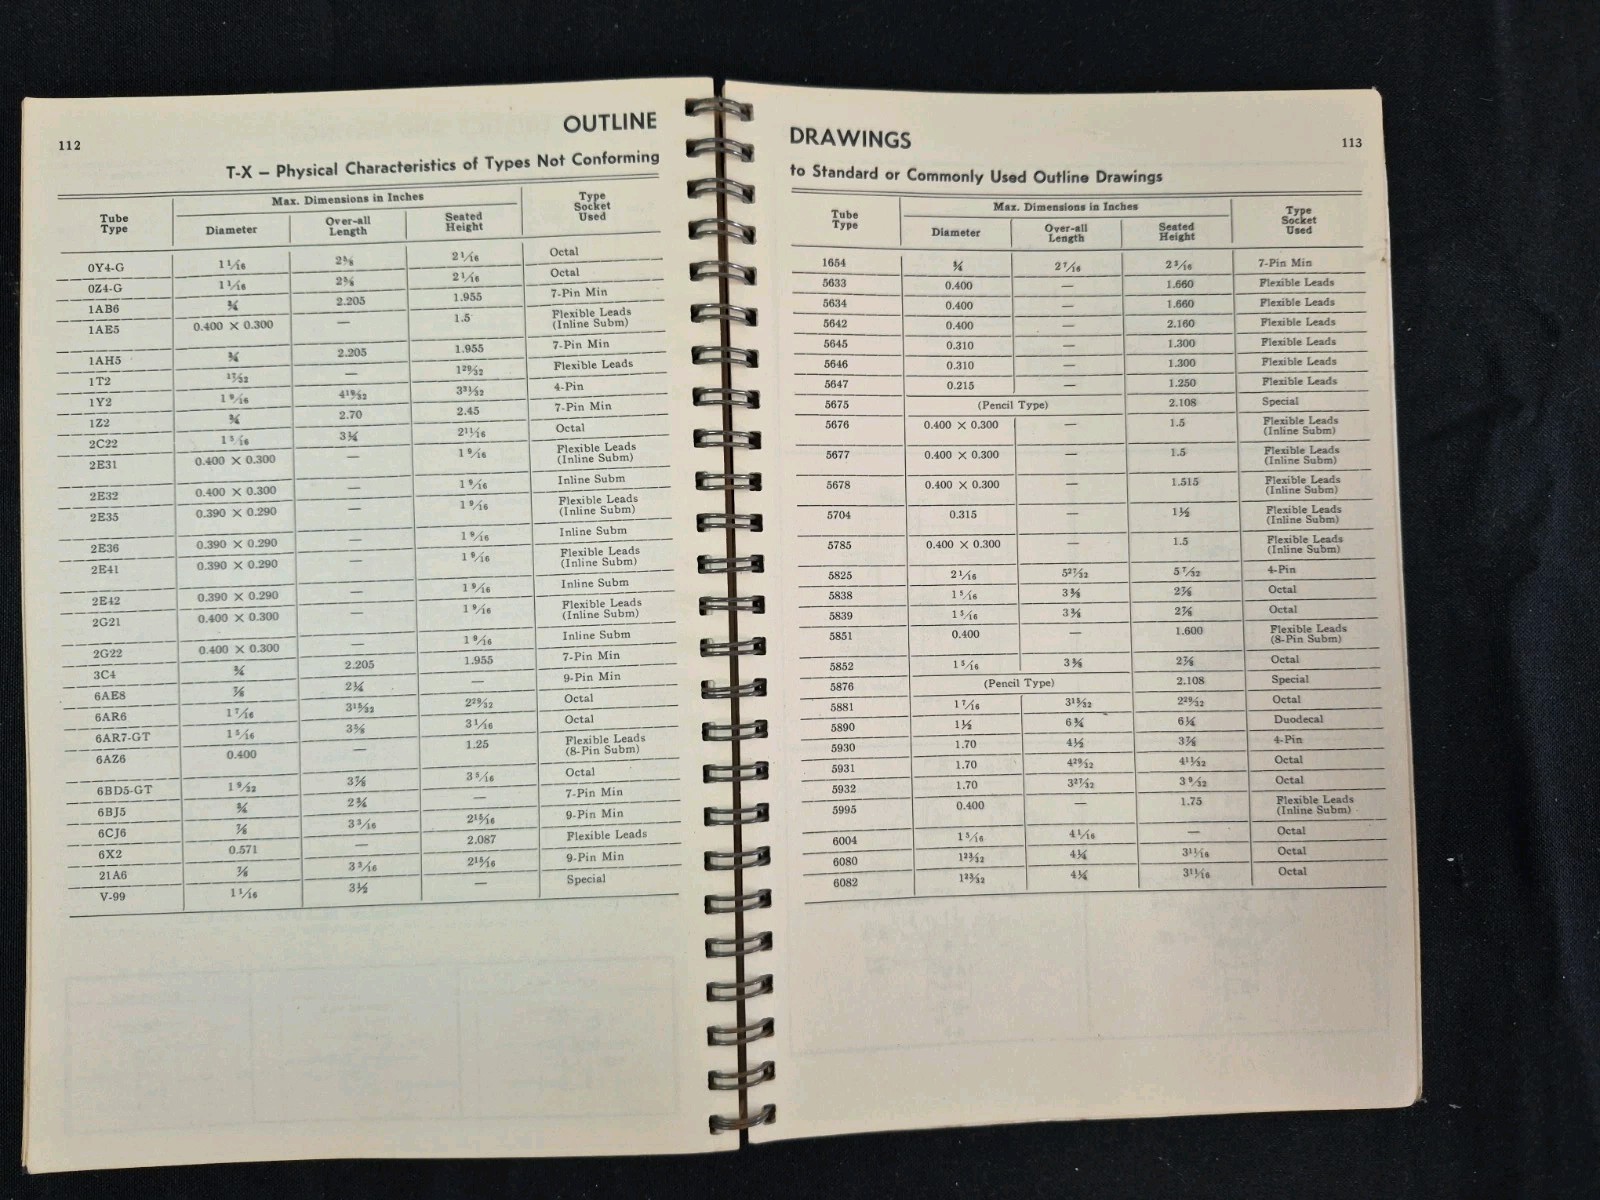 112
OUTLINE
T-X – Physical Characteristics of Types Not Conforming
Tube Type | Max. Dimensions in Inches | Type Socket Used
Diameter | Over-all Length | Seated Height
0Y4-G | 1 1/16 | 2⅝ | 2 1/16 | Octal
0Z4-G | 1 1/16 | 2⅝ | 2 1/16 | Octal
1AB6 | ¾ | 2.205 | 1.955 | 7-Pin Min
1AE5 | 0.400 × 0.300 | — | 1.5 | Flexible Leads (Inline Subm)
1AH5 | ¾ | 2.205 | 1.955 | 7-Pin Min
1T2 | 17/32 | — | 1 29/32 | Flexible Leads
1Y2 | 1 9/16 | 4 19/32 | 3 31/32 | 4-Pin
1Z2 | ¾ | 2.70 | 2.45 | 7-Pin Min
2C22 | 1 5/16 | 3¼ | 2 11/16 | Octal
2E31 | 0.400 × 0.300 | — | 1 9/16 | Flexible Leads (Inline Subm)
2E32 | 0.400 × 0.300 | — | 1 9/16 | Inline Subm
2E35 | 0.390 × 0.290 | — | 1 9/16 | Flexible Leads (Inline Subm)
2E36 | 0.390 × 0.290 | — | 1 9/16 | Inline Subm
2E41 | 0.390 × 0.290 | — | 1 9/16 | Flexible Leads (Inline Subm)
2E42 | 0.390 × 0.290 | — | 1 9/16 | Inline Subm
2G21 | 0.400 × 0.300 | — | 1 9/16 | Flexible Leads (Inline Subm)
2G22 | 0.400 × 0.300 | — | 1 9/16 | Inline Subm
3C4 | ¾ | 2.205 | 1.955 | 7-Pin Min
6AE8 | ⅞ | 2¼ | — | 9-Pin Min
6AR6 | 1 7/16 | 3 15/32 | 2 29/32 | Octal
6AR7-GT | 1 5/16 | 3⅝ | 3 1/16 | Octal
6AZ6 | 0.400 | — | 1.25 | Flexible Leads (8-Pin Subm)
6BD5-GT | 1 9/32 | 3⅞ | 3 5/16 | Octal
6BJ5 | ¾ | 2⅝ | — | 7-Pin Min
6CJ6 | ⅞ | 3 3/16 | 2 15/16 | 9-Pin Min
6X2 | 0.571 | — | 2.087 | Flexible Leads
21A6 | ⅞ | 3 3/16 | 2 15/16 | 9-Pin Min
V-99 | 1 1/16 | 3½ | — | Special
DRAWINGS
113
to Standard or Commonly Used Outline Drawings
Tube Type | Max. Dimensions in Inches | Type Socket Used
Diameter | Over-all Length | Seated Height
1654 | ¾ | 2 7/16 | 2 3/16 | 7-Pin Min
5633 | 0.400 | — | 1.660 | Flexible Leads
5634 | 0.400 | — | 1.660 | Flexible Leads
5642 | 0.400 | — | 2.160 | Flexible Leads
5645 | 0.310 | — | 1.300 | Flexible Leads
5646 | 0.310 | — | 1.300 | Flexible Leads
5647 | 0.215 | — | 1.250 | Flexible Leads
5675 | (Pencil Type) | 2.108 | Special
5676 | 0.400 × 0.300 | — | 1.5 | Flexible Leads (Inline Subm)
5677 | 0.400 × 0.300 | — | 1.5 | Flexible Leads (Inline Subm)
5678 | 0.400 × 0.300 | — | 1.515 | Flexible Leads (Inline Subm)
5704 | 0.315 | — | 1½ | Flexible Leads (Inline Subm)
5785 | 0.400 × 0.300 | — | 1.5 | Flexible Leads (Inline Subm)
5825 | 2 1/16 | 5 27/32 | 5 7/32 | 4-Pin
5838 | 1 5/16 | 3⅜ | 2⅞ | Octal
5839 | 1 5/16 | 3⅜ | 2⅞ | Octal
5851 | 0.400 | — | 1.600 | Flexible Leads (8-Pin Subm)
5852 | 1 5/16 | 3⅜ | 2⅞ | Octal
5876 | (Pencil Type) | 2.108 | Special
5881 | 1 7/16 | 3 15/32 | 2 29/32 | Octal
5890 | 1½ | 6¾ | 6¼ | Duodecal
5930 | 1.70 | 4½ | 3⅞ | 4-Pin
5931 | 1.70 | 4 29/32 | 4 11/32 | Octal
5932 | 1.70 | 3 27/32 | 3 9/32 | Octal
5995 | 0.400 | — | 1.75 | Flexible Leads (Inline Subm)
6004 | 1 5/16 | 4 1/16 | — | Octal
6080 | 1 23/32 | 4¼ | 3 11/16 | Octal
6082 | 1 23/32 | 4¼ | 3 11/16 | Octal